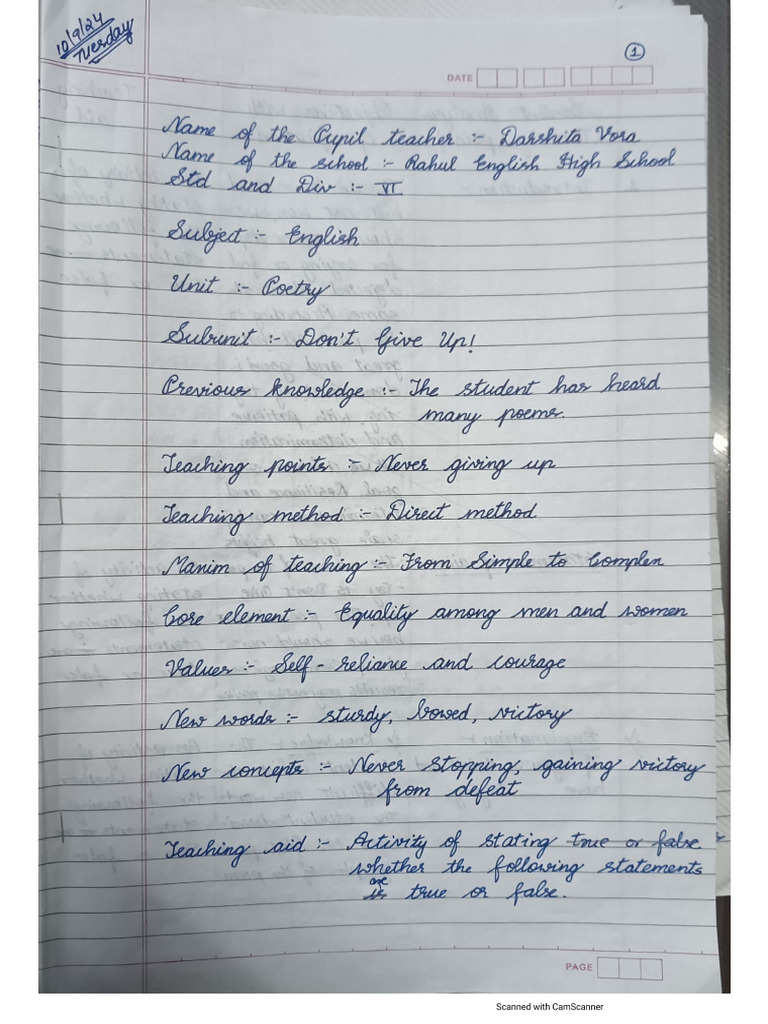 10/9/24
Tuesday
1
DATE
Name of the Pupil teacher :- Darshita Vora
Name of the school :- Rahul English High School
Std and Div :- VI
Subject :- English
Unit :- Poetry
Subunit :- Don't Give Up!
Previous knowledge :- The student has heard
many poems.
Teaching points :- Never giving up
Teaching method :- Direct method
Maxim of teaching :- From Simple to Complex
Core element :- Equality among men and women
Values :- Self-reliance and courage
New words :- sturdy, bowed, victory
New concepts :- Never stopping, gaining victory
from defeat
Teaching aid :- Activity of stating true or false
whether the following statements
are
is true or false.
PAGE
Scanned with CamScanner